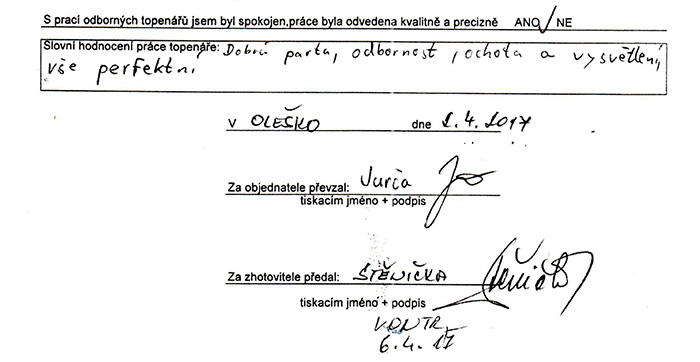 S prací odborných topenářů jsem byl spokojen,práce byla odvedena kvalitně a precizně ANO/NE
Slovní hodnocení práce topenáře: Dobrá parta, odbornost, ochota a vysvětlení,
vše perfektní.
v OLEŠKO dne 1.4.2017
Za objednatele převzal: Jurča
tiskacím jméno + podpis
Za zhotovitele předal: ŠTĚNIČKA
tiskacím jméno + podpis
KONTR.
6.4.17